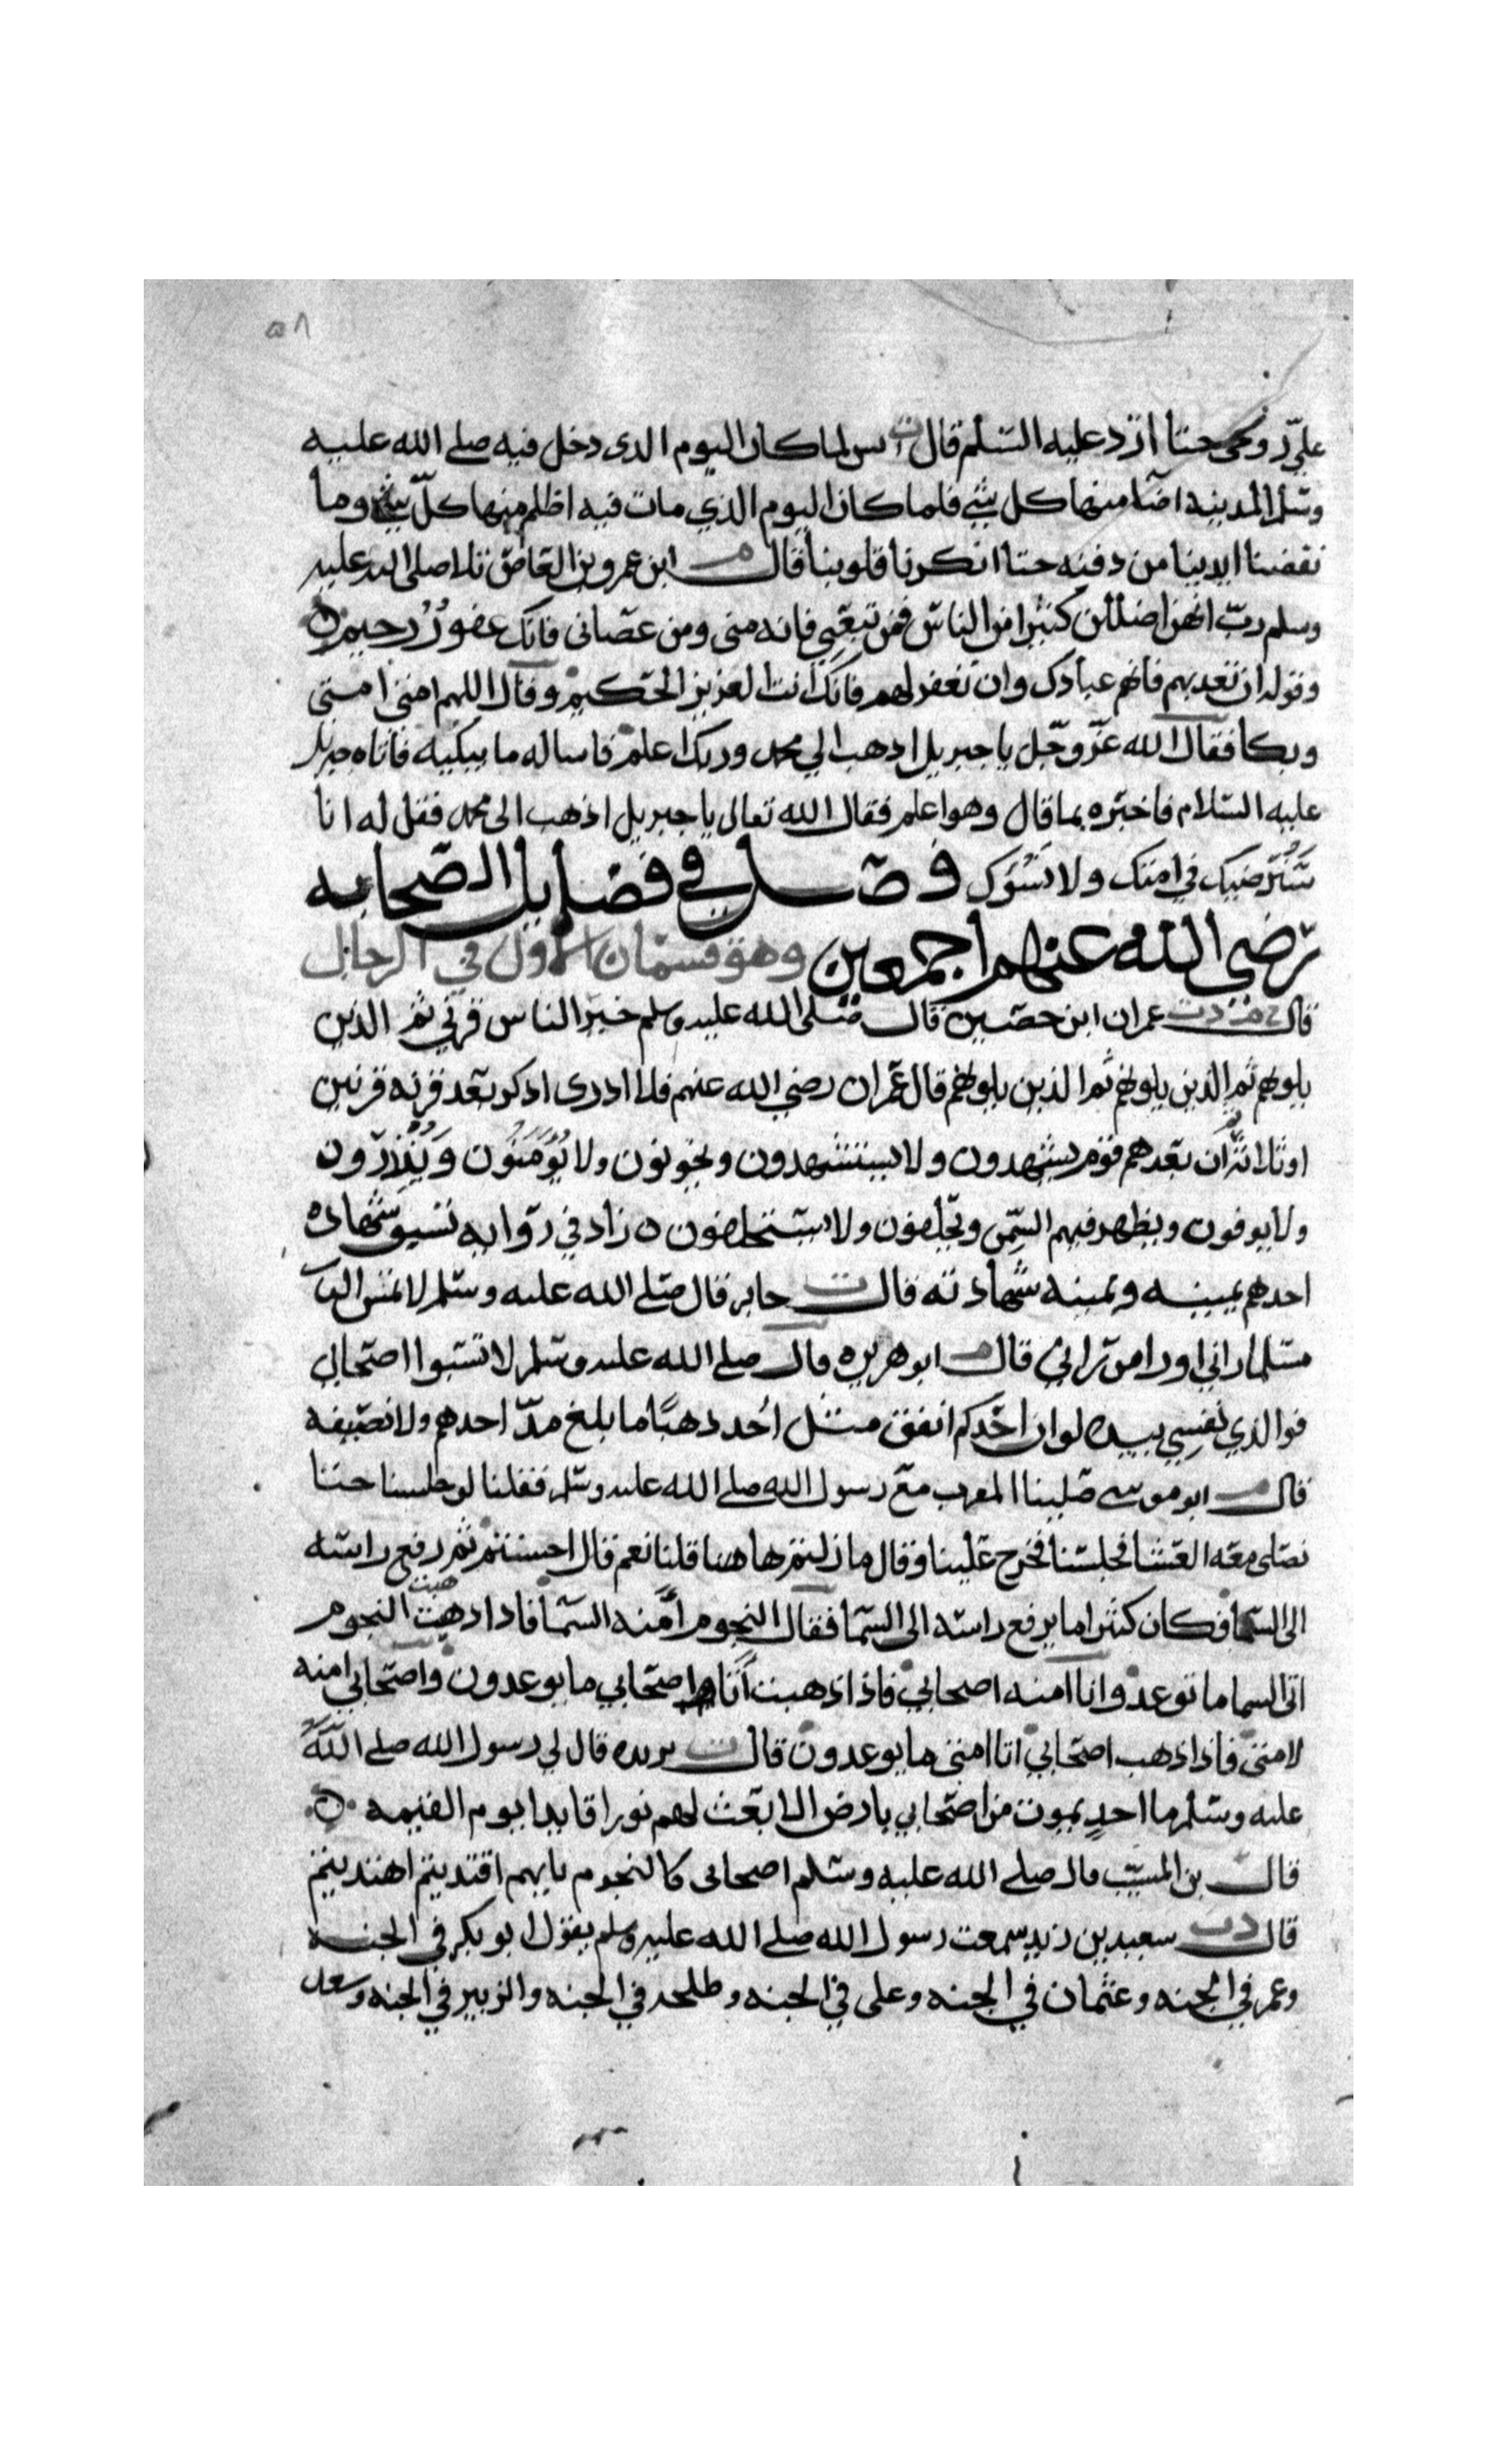 ٥٨
عليّ روحي حتا ارد عليه السّلم قال ت انس لما كان اليوم الدى دخل فيه صلے الله عليه
وسّلم المدينه اضا منها كل شي فلما كان اليوم الذي مات فيه اظلم منها كلّ شي وما
نفضنا ايدينا من دفنه حتا انكرنا قلوبنا قال م ابن عمرو بن العاص تلا صلى الله عليه
وسلم ربّ انهن اضللن كثيرا من الناس فمن تبعَني فانه منى ومن عصانى فانك غفورٌ رحيم ن
وقوله ان تعذبهم فانهم عبادك وان تغفر لهم فانك انت العزيز الحكيم وقال اللهم امتي امتي
وبكا فقال الله عزّ وجّل يا جبريل اذهب الي محمد وربك اعلم فاساله ما يبكيه فاتاه جبريل
عليه السّلام فاخبره بما قال وهو اعلم فقال الله تعالى يا جبريل اذهب الى محمد فقل له انا
سَنُرضيك في امتك ولا نَسُوك فصل في فضايل الصّحابه
رضي الله عنهم اجمعين وهو قسمان الاول في الرجال
قال خ م د ت عمران ابن حصين قال صلى الله عليه وسلم خير الناس قرني ثم الذين
يلونهم ثم الذين يلونهم ثم الذين يلونهم قال عمران رضي الله عنهم فلا ادرى اذكر بعد قرنه قرنين
او ثلاثا ثم ان بعدهم قوم يشهدون ولا يستشهدون ويخونون ولا يُؤمَنُون وَيُنْذِرُون
ولا يوفون ويظهر فيهم السِّمن ويحلفون ولا يستحلفون ه زاد في روايه تسبق شهاده
احدهم يمينه ويمينه شهادته قال ت جابر قال صلے الله عليه وسّلم لا تمس النار
مسّلما راني او را من راني قال م ابو هريره قال صلے الله عليه وسّلم لا تسّبوا اصحابي
فوالذي نفسِي بيده لو ان احدكم انفق مثل اُحد ذهبًا ما بلغ مدّ احدهم ولا نصيفه
قال م ابو موسے صلينا المغرب مع رسول الله صلے الله عليه وسّلم فقلنا لو جلسنا حتا
نصلى معه العشا فجلسنا فخرج علينا وقال ما زلتم هاهنا قلنا نعم قال احسنتم ثم رفع راسه
الى السما وكان كثيرا ما يرفع راسه الى السّما فقال النجوم اَمَنه السّما فاذا ذهبت هبت النجوم
اتى السما ما توعد وانا امنه اصحابي فاذا ذهبت اَنا اصحابي ما يوعدون واصحابي امنه
لامتي فاذا ذهب اصحابي اتا امتي ما يوعدون قال ت بريده قال لي رسول الله صلے اللّه
عليه وسّلم ما احدٍ يموت من اصحابي بارض الا بعث لهم نورا قايدا يوم القيمه ن
قال بن المسيّب قال صلے الله عليه وسّلم اصحابى كالنجوم بايهم اقتديتم اهتديتم
قال د ت سعيد بن زيد سمعت رسول الله صلے الله عليه وسلم يقول ابو بكر في الجنه
وعمر في الجنه وعثمان في الجنه وعلى في الجنه وطلحه في الجنه والزبير في الجنه وسعد